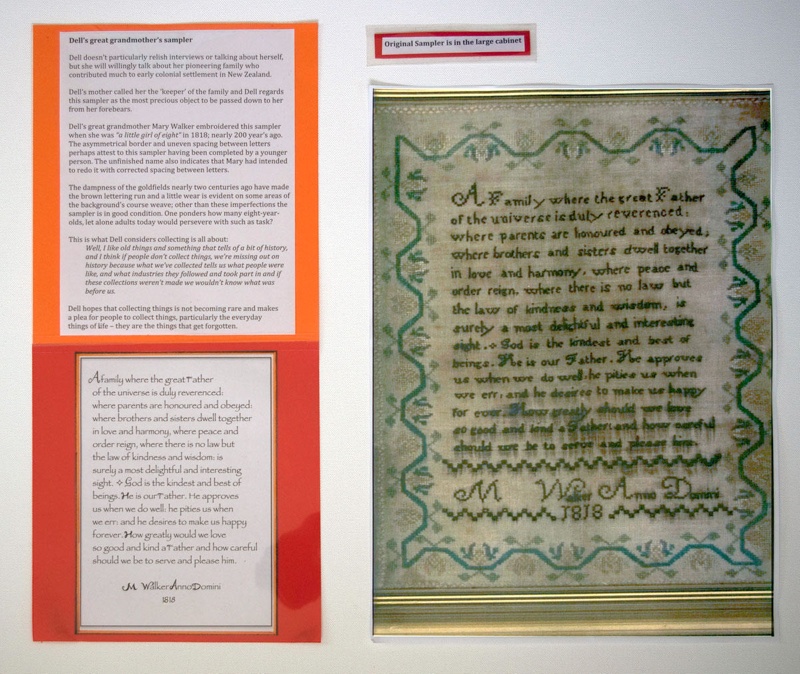 Dell's great grandmother's sampler
Dell doesn't particularly relish interviews or talking about herself,
but she will willingly talk about her pioneering family who
contributed much to early colonial settlement in New Zealand.
Dell's mother called her the 'keeper' of the family and Dell regards
this sampler as the most precious object to be passed down to her
from her forebears.
Dell's great grandmother Mary Walker embroidered this sampler
when she was "a little girl of eight" in 1818; nearly 200 year's ago.
The asymmetrical border and uneven spacing between letters
perhaps attest to this sampler having been completed by a younger
person. The unfinished name also indicates that Mary had intended
to redo it with corrected spacing between letters.
The dampness of the goldfields nearly two centuries ago have made
the brown lettering run and a little wear is evident on some areas of
the background's course weave; other than these imperfections the
sampler is in good condition. One ponders how many eight-year-
olds, let alone adults today would persevere with such as task?
This is what Dell considers collecting is all about:
Well, I like old things and something that tells of a bit of history,
and I think if people don't collect things, we're missing out on
history because what we've collected tells us what people were
like, and what industries they followed and took part in and if
these collections weren't made we wouldn't know what was
before us.
Dell hopes that collecting things is not becoming rare and makes
a plea for people to collect things, particularly the everyday
things of life – they are the things that get forgotten.
A family where the great Father
of the universe is duly reverenced:
where parents are honoured and obeyed:
where brothers and sisters dwell together
in love and harmony, where peace and
order reign, where there is no law but
the law of kindness and wisdom: is
surely a most delightful and interesting
sight. ✧ God is the kindest and best of
beings. He is our Father. He approves
us when we do well: he pities us when
we err: and he desires to make us happy
forever. How greatly would we love
so good and kind a Father and how careful
should we be to serve and please him.
M Walker Anno Domini
1818
Original Sampler is in the large cabinet
A Family where the great Father
of the universe is duly reverenced:
where parents are honoured and obeyed;
where brothers and sisters dwell together
in love and harmony, where peace and
order reign, where there is no law but
the law of kindness and wisdom, is
surely a most delightful and interesting
sight. ✧ God is the kindest and best of
beings. He is our Father. He approves
us when we do well, he pities us when
we err, and he desires to make us happy
for ever. How greatly should we love
so good and kind a Father; and how careful
should we be to serve and please him.
M Walker Anno Domini
1818